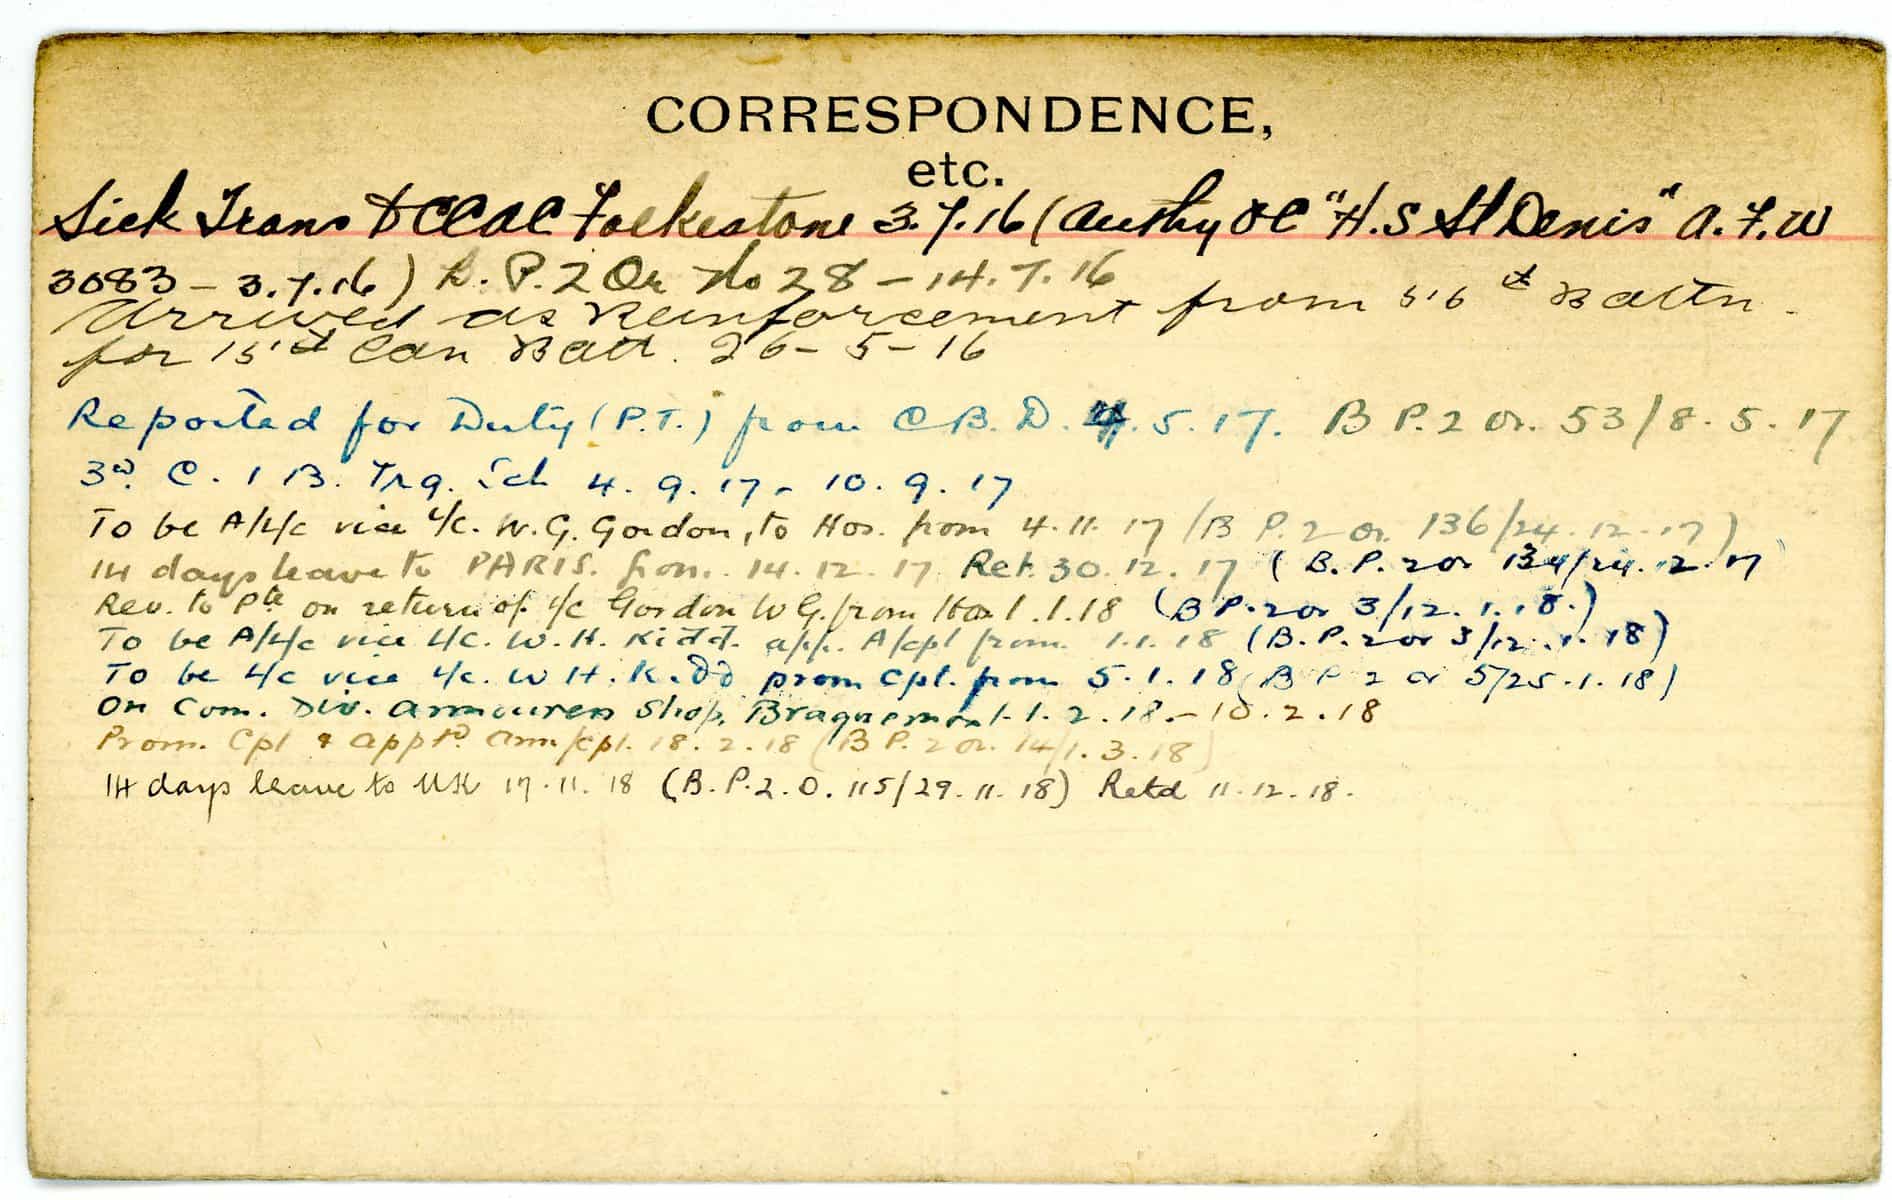 CORRESPONDENCE,
etc.
Sick Trans to CCAC Folkestone 3.7.16 (Authy OC "H.S St Denis" A.F.W
3083 – 3.7.16) P.2 Or No 28 – 14.7.16
Arrived as Reinforcement from 56th Battn.
for 15th Can Batt. 26–5–16
Reported for Duty (P.T.) from C B. D. 4.5.17. B P.2 Or. 53/8.5.17
3rd C. I B. Trg. Sch 4.9.17 – 10.9.17
To be A/L/c vice L/c. W.G. Gordon, to Hos. from 4.11.17 (B P.2 Or. 136/24.12.17)
14 days leave to PARIS. from. 14.12.17 Ret. 30.12.17 (B.P. 2 or 134/24.12.17
Rev. to Pte on return of L/c Gordon W G. from Hos 1.1.18 (B P. 2 or 3/12.1.18.)
To be A/L/c vice L/c. W. H. Kidd. app. A/cpl from 1.1.18 (B.P. 2 or 3/12.1.18)
To be L/c vice L/c. W H. Kidd prom Cpl. from 5.1.18 (B P 2 or 5/25.1.18)
On Com. Div. Armourers Shop, Braquemont. 1.2.18 – 10.2.18
Prom. Cpl & Apptd. Arm/cpl. 18.2.18 (B P. 2 Or. 14/1.3.18)
14 days leave to UK 17.11.18 (B.P.2.O. 115/29.11.18) Retd 11.12.18.